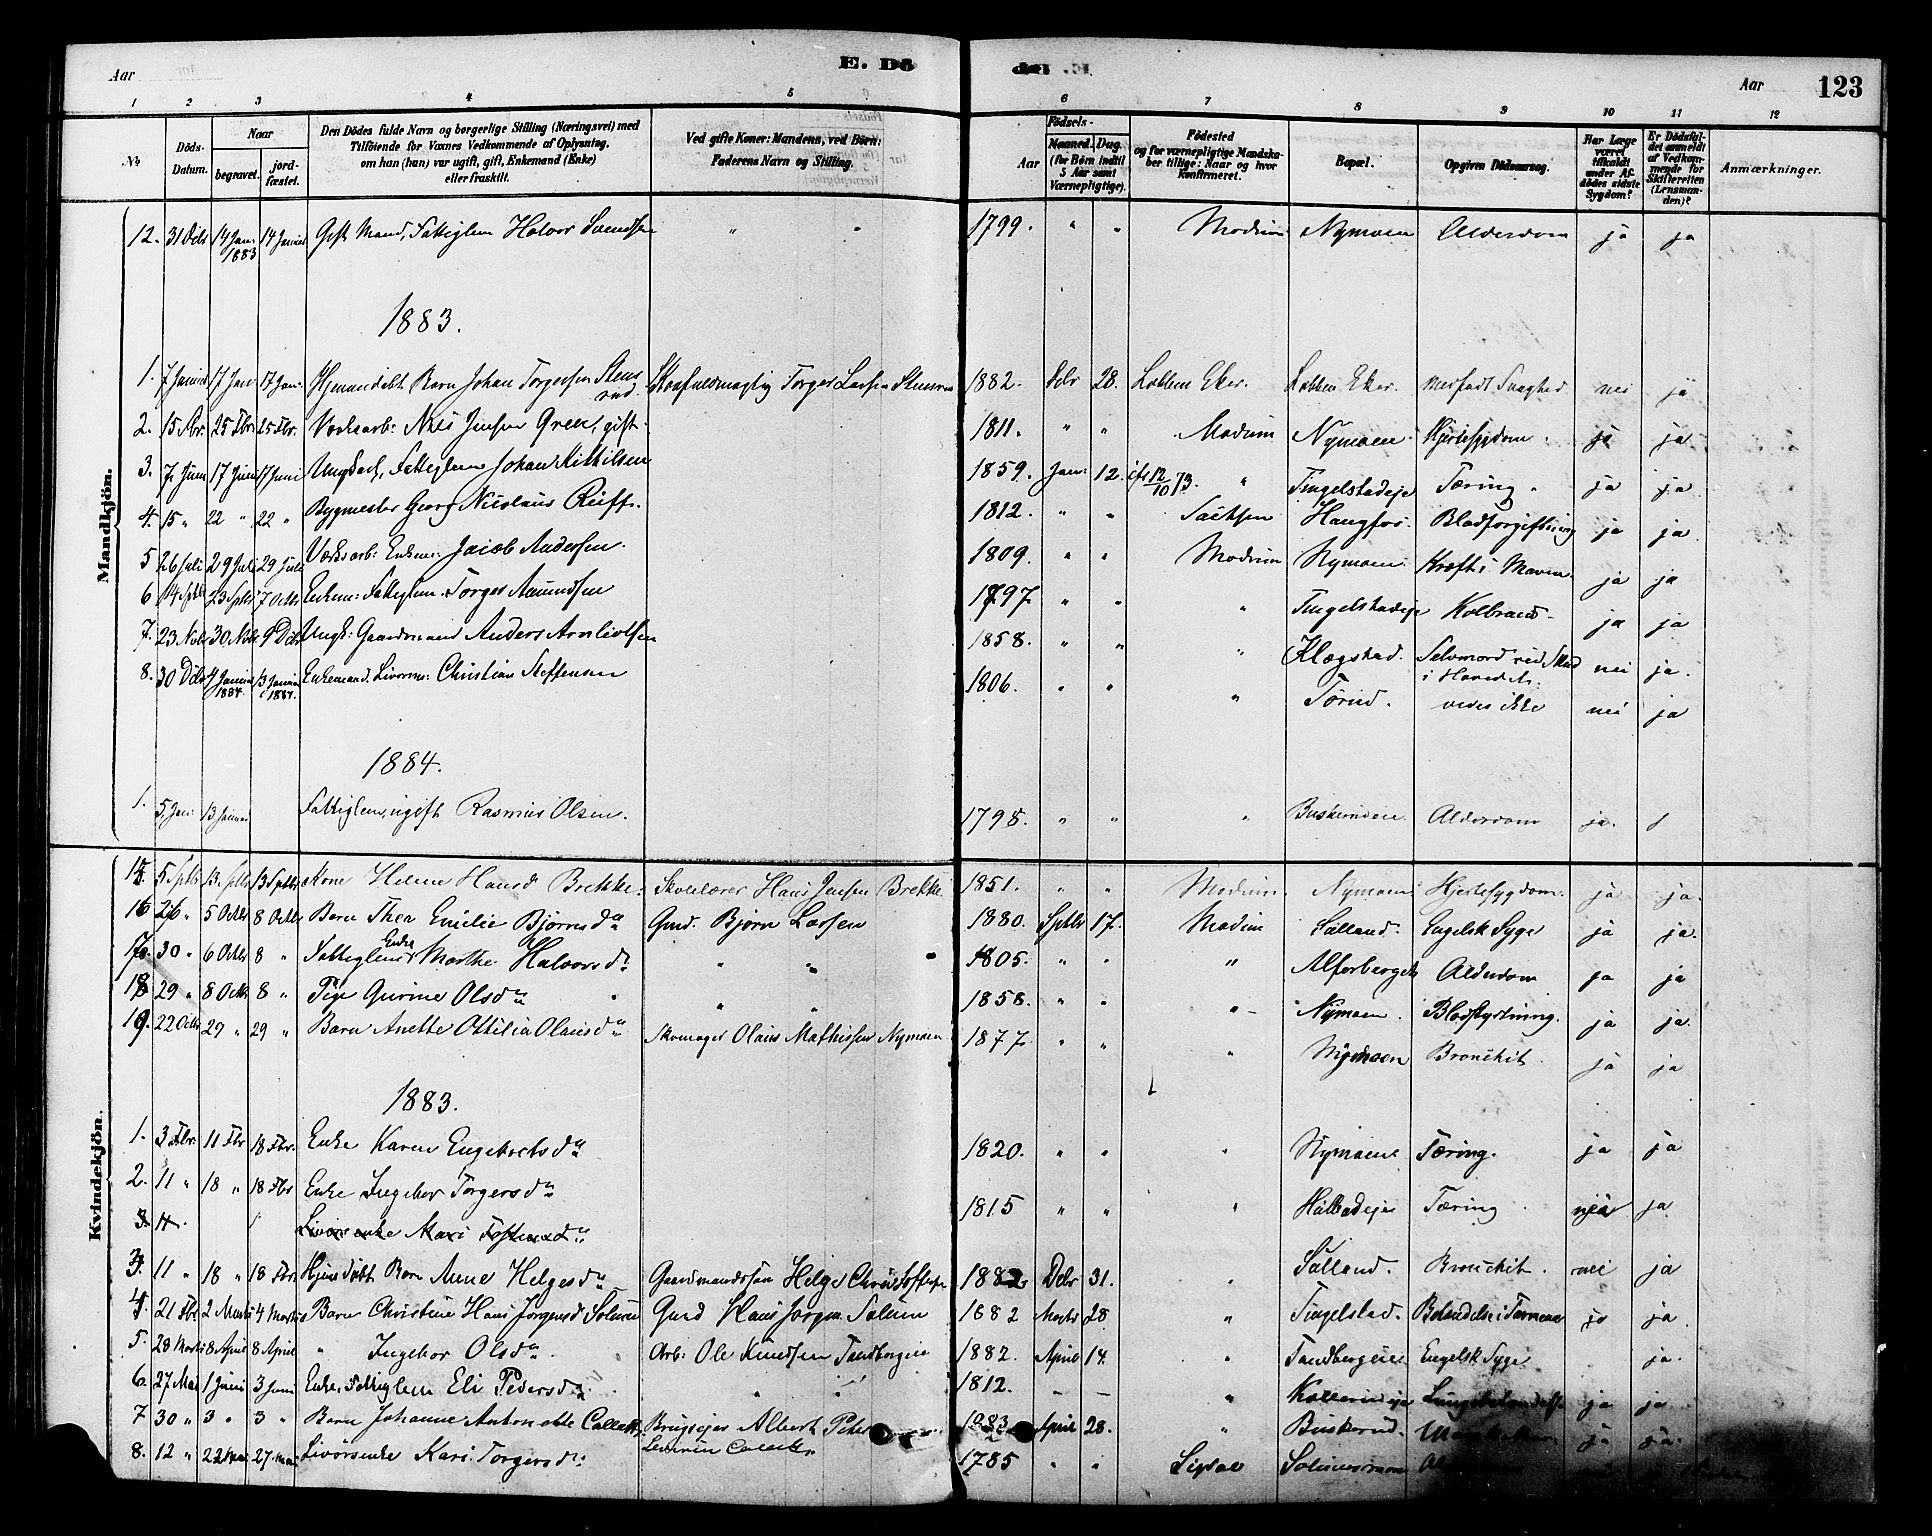 Aar E. Dö Aar 123
1 2 3 4 5 6 7 8 9 10 11 12
No Döds-Datum. Naar begravet. jord-fæstet. Den Dödes fulde Navn og borgerlige Stilling (Næringsvei) med Tilföiende for Voxnes Vedkommende af Oplysning, om han (hun) var ugift, gift, Enkemand (Enke) eller fraskilt. Ved gifte Koner: Mandens, ved Börn: Faderens Navn og Stilling. Födsels- Aar Maaned. Dag. (for Börn indtil 5 Aar samt Værnepligtige). Födested og for værnepligtige Mandskaber tillige: Naar og hvor Konfirmeret. Bopæl. Opgiven Dödsaarsag. Har Læge været tilkaldt under Afdödes sidste Sygdom? Er Dödsfaldet anmeldt af Vedkommende for Skifteretten (Lensmanden)? Anmærkninger.
Mandkjön.
12. 31 Dcbr 14 Jan. 1883 14 Januar Gift Mand, Fattiglem Halvor Svendsen " " 1799. " " Modum Nymoen Alderdom ja ja
1883.
1. 7 Januar 17 Jan 17 Jan. Hjemmedøbt Barn Johan Torgersen Stensrud Skovfuldmægtig Torger Larsen Stensrud 1882. Dcbr 28. Eker. Eker. medfødt Svaghed nei ja
2. 15 Fbr. 25 Fbr. 25 Fbr. Værksarb: Nils Jensen Green, gift. 1811. " " Modum Nymoen Hjertesygdom. ja ja
3. 7 Juni 17 Juni 17 Juni Ungkarl, Fattiglem Johan Kittilsen 1859. Jan. 12. 12/10 73. " Tingelstadeje Tæring. ja ja
4. 15 " 22 " 22 " Bygmester Georg Nicolaus Reiff. 1812. " " Sachsen Haugfos. Blodforgiftning ja ja
5 26 Juli 29 Juli 29 Juli Værksarb: Enkem: Jacob Andersen. 1809. " " Modum Nymoen Kræft i Maven. ja ja
6 14 Sptbr 23 Sptbr 7 Octbr Enkem: Fattiglem. Torger Amundsen 1797 " " " Tingelstadeje Kolbrand. ja ja
7. 23 Nvbr 30 Nvbr 9 Dcbr Ungk: Gaardmand Anders Arnliotsen 1858. " " " Klægstad. Selvmord ved Skud i Hovedet. nei ja.
8. 30 Dcbr 4 Januar 1884. 13 Januar 1884. Enkemand. Livørm: Christian Steffensen 1806. " " " Tørud. vides ikke nei ja
1884.
1. 5 Jan. 13 Januar Fattiglem, ugift Rasmus Olsen. 1795. " " " Buskerudeie Alderdom ja.
Kvindekjön.
15. 5 Sptbr 13 Sptbr 13 Sptbr Kone Helene Hansd Brekke. Skolelærer Hans Jensen Brekke 1851. " " Modum Nymoen Hjertesygdom. ja ja.
16 26 " 5 Octbr 8 Octbr Barn Thea Emilie Bjørnsdr Gmd. Bjørn Larsen 1880. Sptbr 17. Modum Sølland. Engelsk Syge ja ja.
17. 30 " 6 Octbr 8 " Fattiglem Enke Marthe Halvorsdr " " 1805. " " " Alfarberget Alderdom ja ja
18 29 " 8 Octbr 8 " Pige Gurine Olsdr " " 1858. " " " Nymoen. Blodstyrtning. ja ja.
19. 22 Octbr 29 " 29 " Barn Anette Ottilia Olausdr Skomager Olaus Mathissen Nymoen 1877. " " " Nymoen Bronchit. ja ja
1883.
1. 3 Fbr. 11 Fbr 18 Fbr. Enke Karen Engebretsdr 1820. " " " Nymoen Tæring. ja ja
2. 11 " 18 " 18 Fbr Enke Ingebor Torgersdr 1815 " " " Tæring nei ja
3. 11. Livørsenke Mari Torstensdr.
3. 11 " 18 " 18 Fbr. Hjemdøbt Barn Anne Helgesdr Gaardmandssøn Helge Christoffersen 1882 Dcbr 31. " Sølland. Bronchit. nei ja
4. 21 Fbr. 2 Marts 4 Marts Barn Christine Hans Jørgensd Solum Gmd Hans Jørgen Solum 1882 Marts 28 " Tingelstad. Betændelse i Tarmene ja ja.
5. 28 Marts 8 April 8 April " Ingebor Olsdr Arb: Ole Knudsen Tandbergeie 1882. April 14. " Tandbergeie Engelsk Syge ja.
6. 27 Mai 1 Juni 3 Juni Enke, Fattiglem Eli Pedersdr " " 1812. " " " ja ja
7 30 " 3 " 3 " Barn Johanne Antonette Collett Brugseier Albert Peter Severin Collett 1883 April 28. " Buskerud. ja ja.
8. 12 " 22 Mai 27. Mai Livørsenke Kari Torgersdr. 1785 " " Sigdal